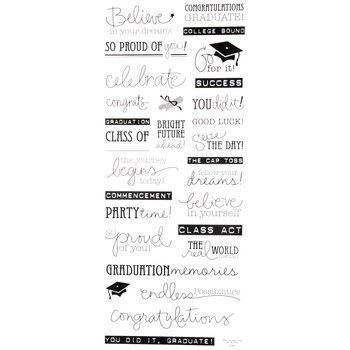 Believe
in your dreams
CONGRATULATIONS
GRADUATE!
COLLEGE BOUND
SO PROUD OF you!
Go
for it!
celebrate
SUCCESS
congrats
YOU did it!
GRADUATION
CLASS OF
BRIGHT
FUTURE
ahead!
GOOD LUCK!
Seize
THE DAY!
the journey
begins
today!
THE CAP TOSS
follow your
dreams!
COMMENCEMENT
believe
in yourself
PARTY time!
CLASS ACT
so
proud
of you!
THE
real WORLD
GRADUATION memories
endless Possibilities
congratulations
YOU DID IT, GRADUATE!